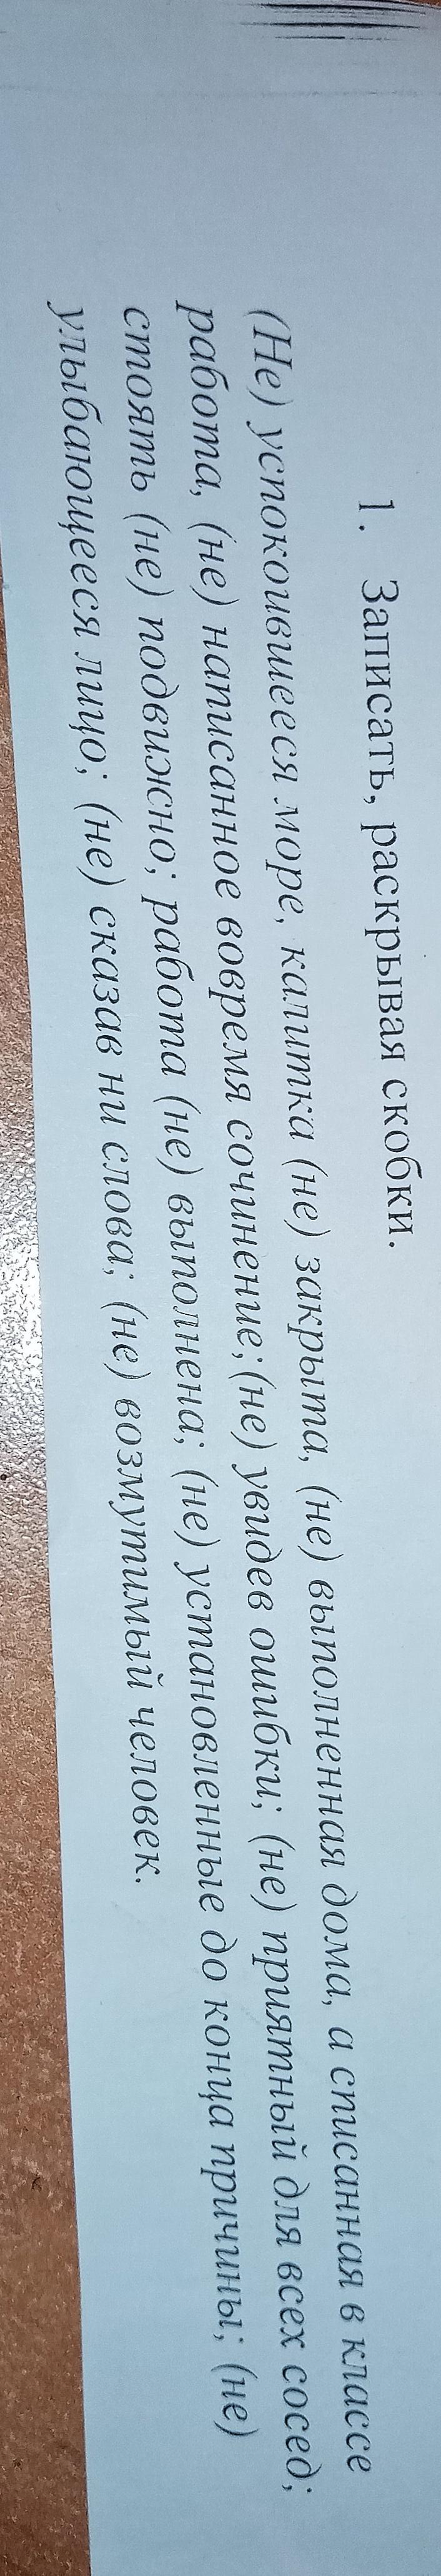 1. Записать, раскрывая скобки.
(Не) успокоившееся море, калитка (не) закрыта, (не) выполненная дома, а списанная в классе
работа, (не) написанное вовремя сочинение;(не) увидев ошибки; (не) приятный для всех сосед;
стоять (не) подвижно; работа (не) выполнена; (не) установленные до конца причины; (не)
улыбающееся лицо; (не) сказав ни слова; (не) возмутимый человек.